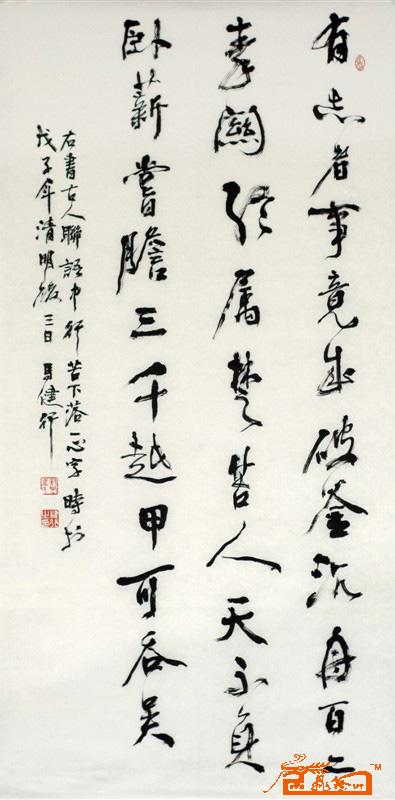 有志者事竟成破釜沉舟百二
秦關終屬楚苦人天不負
臥薪嘗膽三千越甲可吞吳
右書古人聯語中行苦下落一心字時於
戊子年清明後三日馬健行
TM